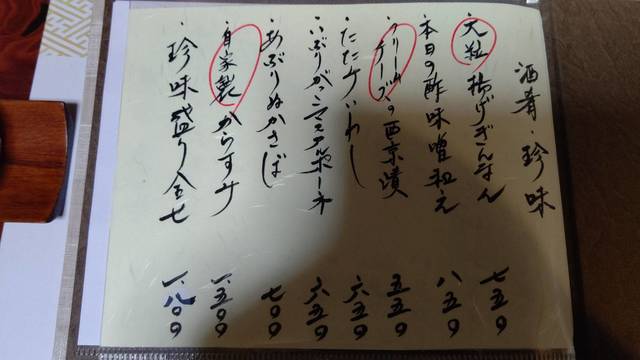 酒肴・珍味
・大粒揚げぎんなん 七五〇
・本日の酢味噌和え 八五〇
・クリームチーズの西京漬 五五〇
・たたみいわし 六五〇
・いぶりがっこマスカルポーネ 六五〇
・あぶりぬかさば 七〇〇
・自家製からすみ 一、五〇〇
・珍味盛り合せ 一、八〇〇